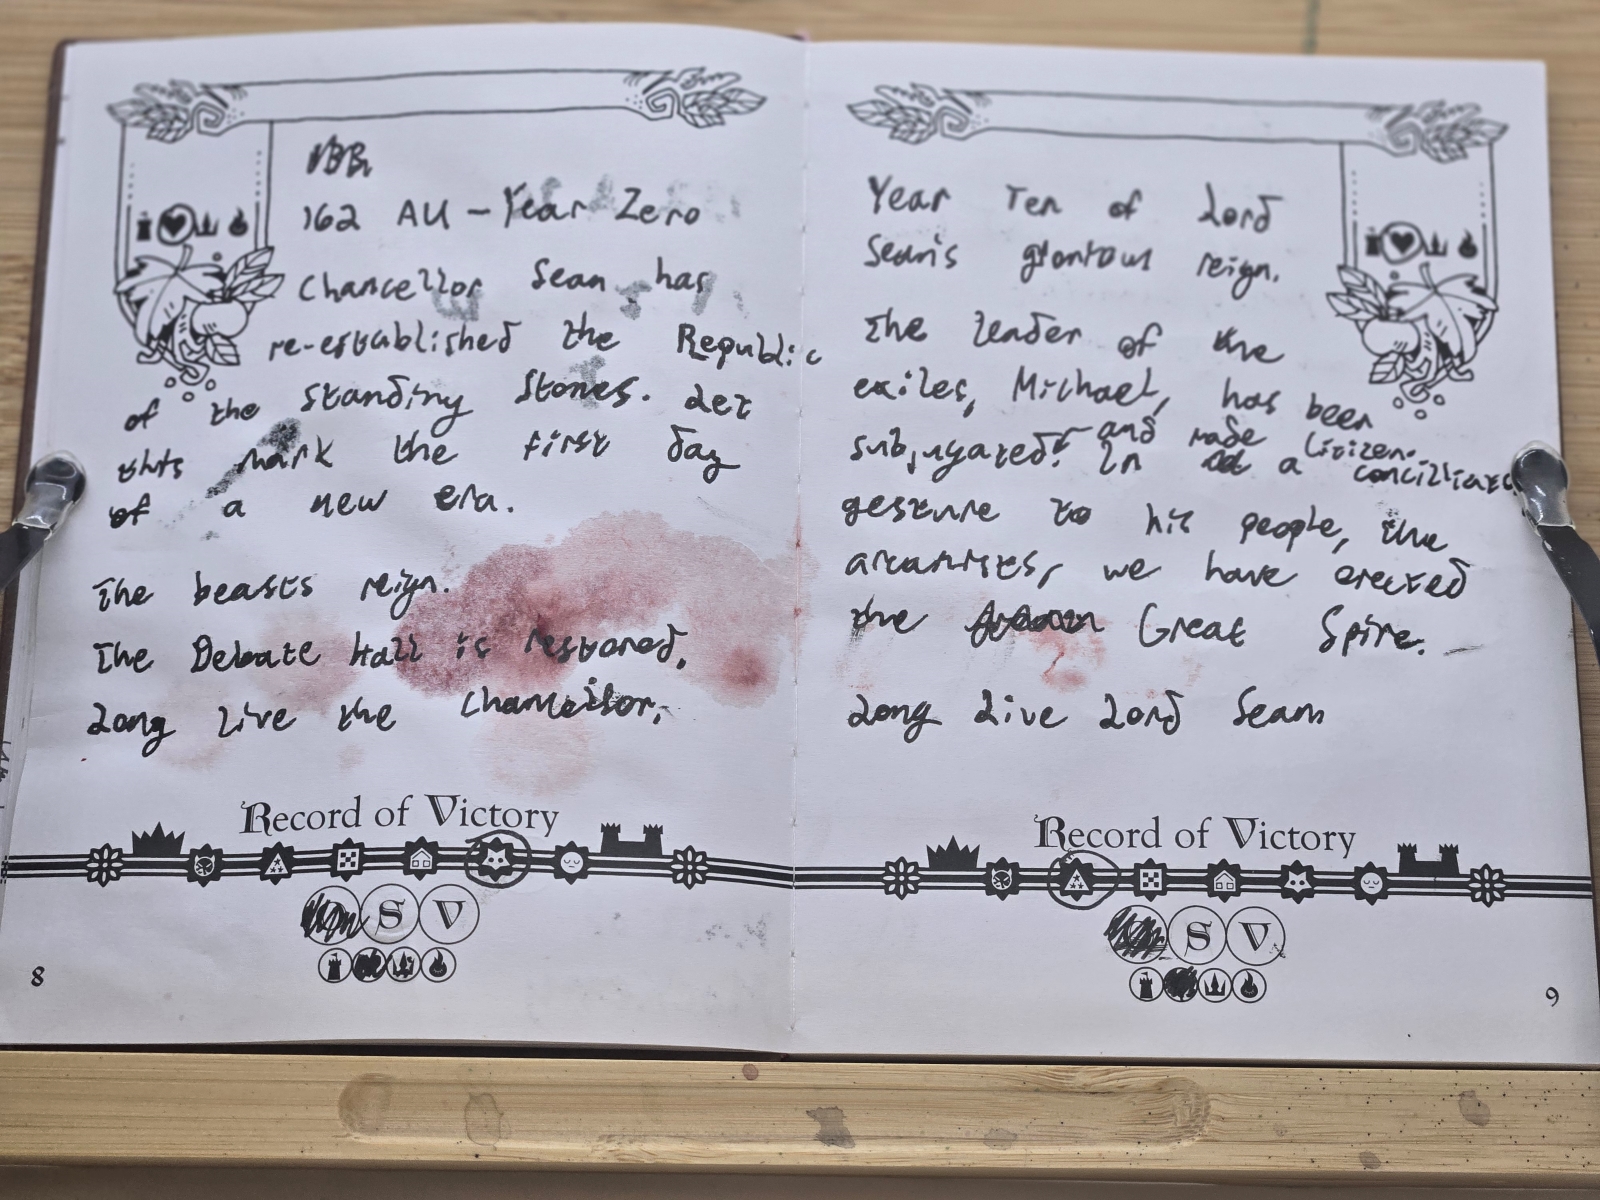 162 AU - Year Zero
Chancellor Sean has
re-established the Republic
of the Standing Stones. Let
this mark the first day
of a new era.
The beasts reign.
The Debate Hall is restored.
Long Live the Chancellor.
Record of Victory
S V
8
Year Ten of Lord
Sean's glorious reign.
The leader of the
exiles, Michael, has been
subjugated and made citizen.
In a conciliatory
gesture to his people, the
arcanists, we have erected
the Great Spire.
Long Live Lord Sean
Record of Victory
S V
9